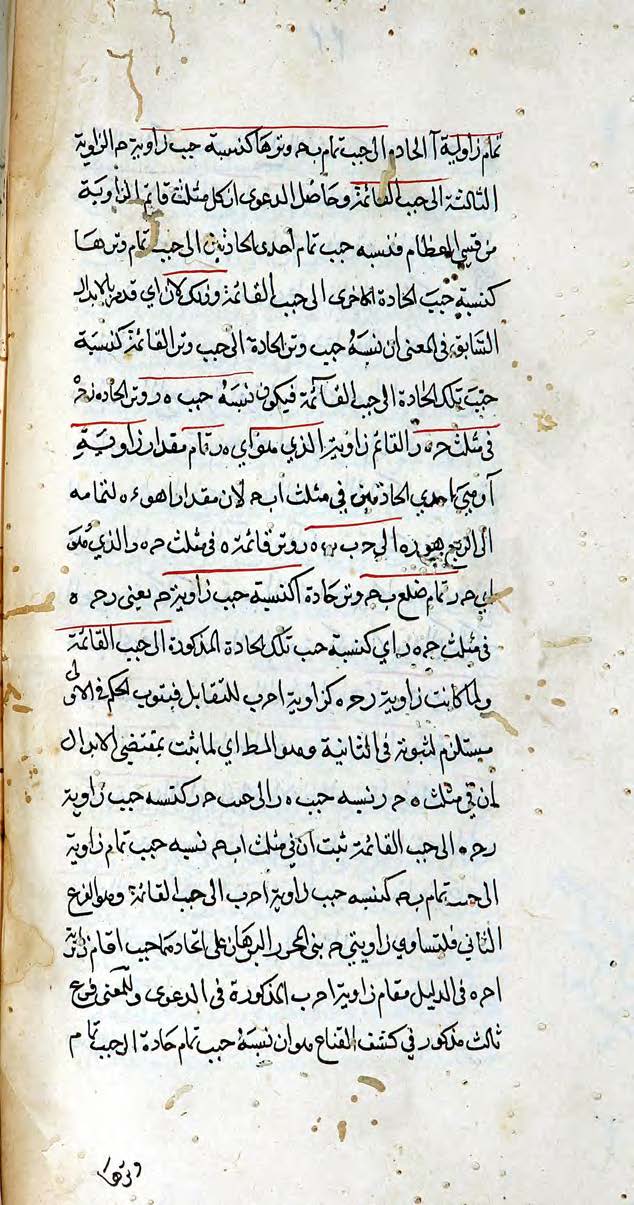 تمام زاوية آ الحادة الى جيب تمام ب ح وترها كنسبة جيب زاوية ح الزاوية
الثالثة الى جيب القائمة وحاصل الدعوى ان كل مثلث قائم الزاوية
من قسي العظام فنسبة جيب تمام احدى الحادتين الى جيب تمام وترها
كنسبة جيب الحادة الاخرى الى جيب القائمة وذلك لان اي قدمه بالابدال
السابق في المعنى ان نسبة جيب وتر الحادة الى جيب وتر القائمة كنسبة
جيب تلك الحادة الى جيب القائمة فيكون نسبة جيب ه ر وتر الحادة
في مثلث ح ه ر القائم زاوية الذي هو اي ه ر تمام مقدار زاوية
آ وهي احدى الحادتين في مثلث اب ح لان مقدار ا هو ء ه لتمامه
الى الربع هو ر ه الى جيب ح ه وتر قائمة ه في مثلث ح ه والذي هو
اي ح ر تمام ضلع ب ح وتر حادة ا كنسبة جيب زاوية ح يعني ر ح ه
في مثلث ح ه ر اي كنسبة جيب تلك الحادة المذكورة الى جيب القائمة
ولما كانت زاوية ر ح ه كزاوية ا ح ب للتقابل فثبوت الحكم في الاولى
مستلزم لثبوته في الثانية وهو المط اي لما ثبت بمقتضى الابدال
ان في مثلث ه ح ر نسبة جيب ه ر الى جيب ح ر كنسبة جيب زاوية
ر ح ه الى جيب القائمة ثبت ان في مثلث اب ح نسبة جيب تمام زاوية
الى جيب تمام ب ح كنسبة جيب زاوية ا ح ب الى جيب القائمة وهو الفرع
الثاني فلتساوي زاويتي ح بنى المحرر البرهان على اتحادهما حيث اقام زاوية
ا ح ه في الدليل مقام زاوية ا ح ب المذكورة في الدعوى وللمغني فرع
ثالث مذكور في كشف القناع هو ان نسبة جيب تمام حادة الى جيب تمام
وترها